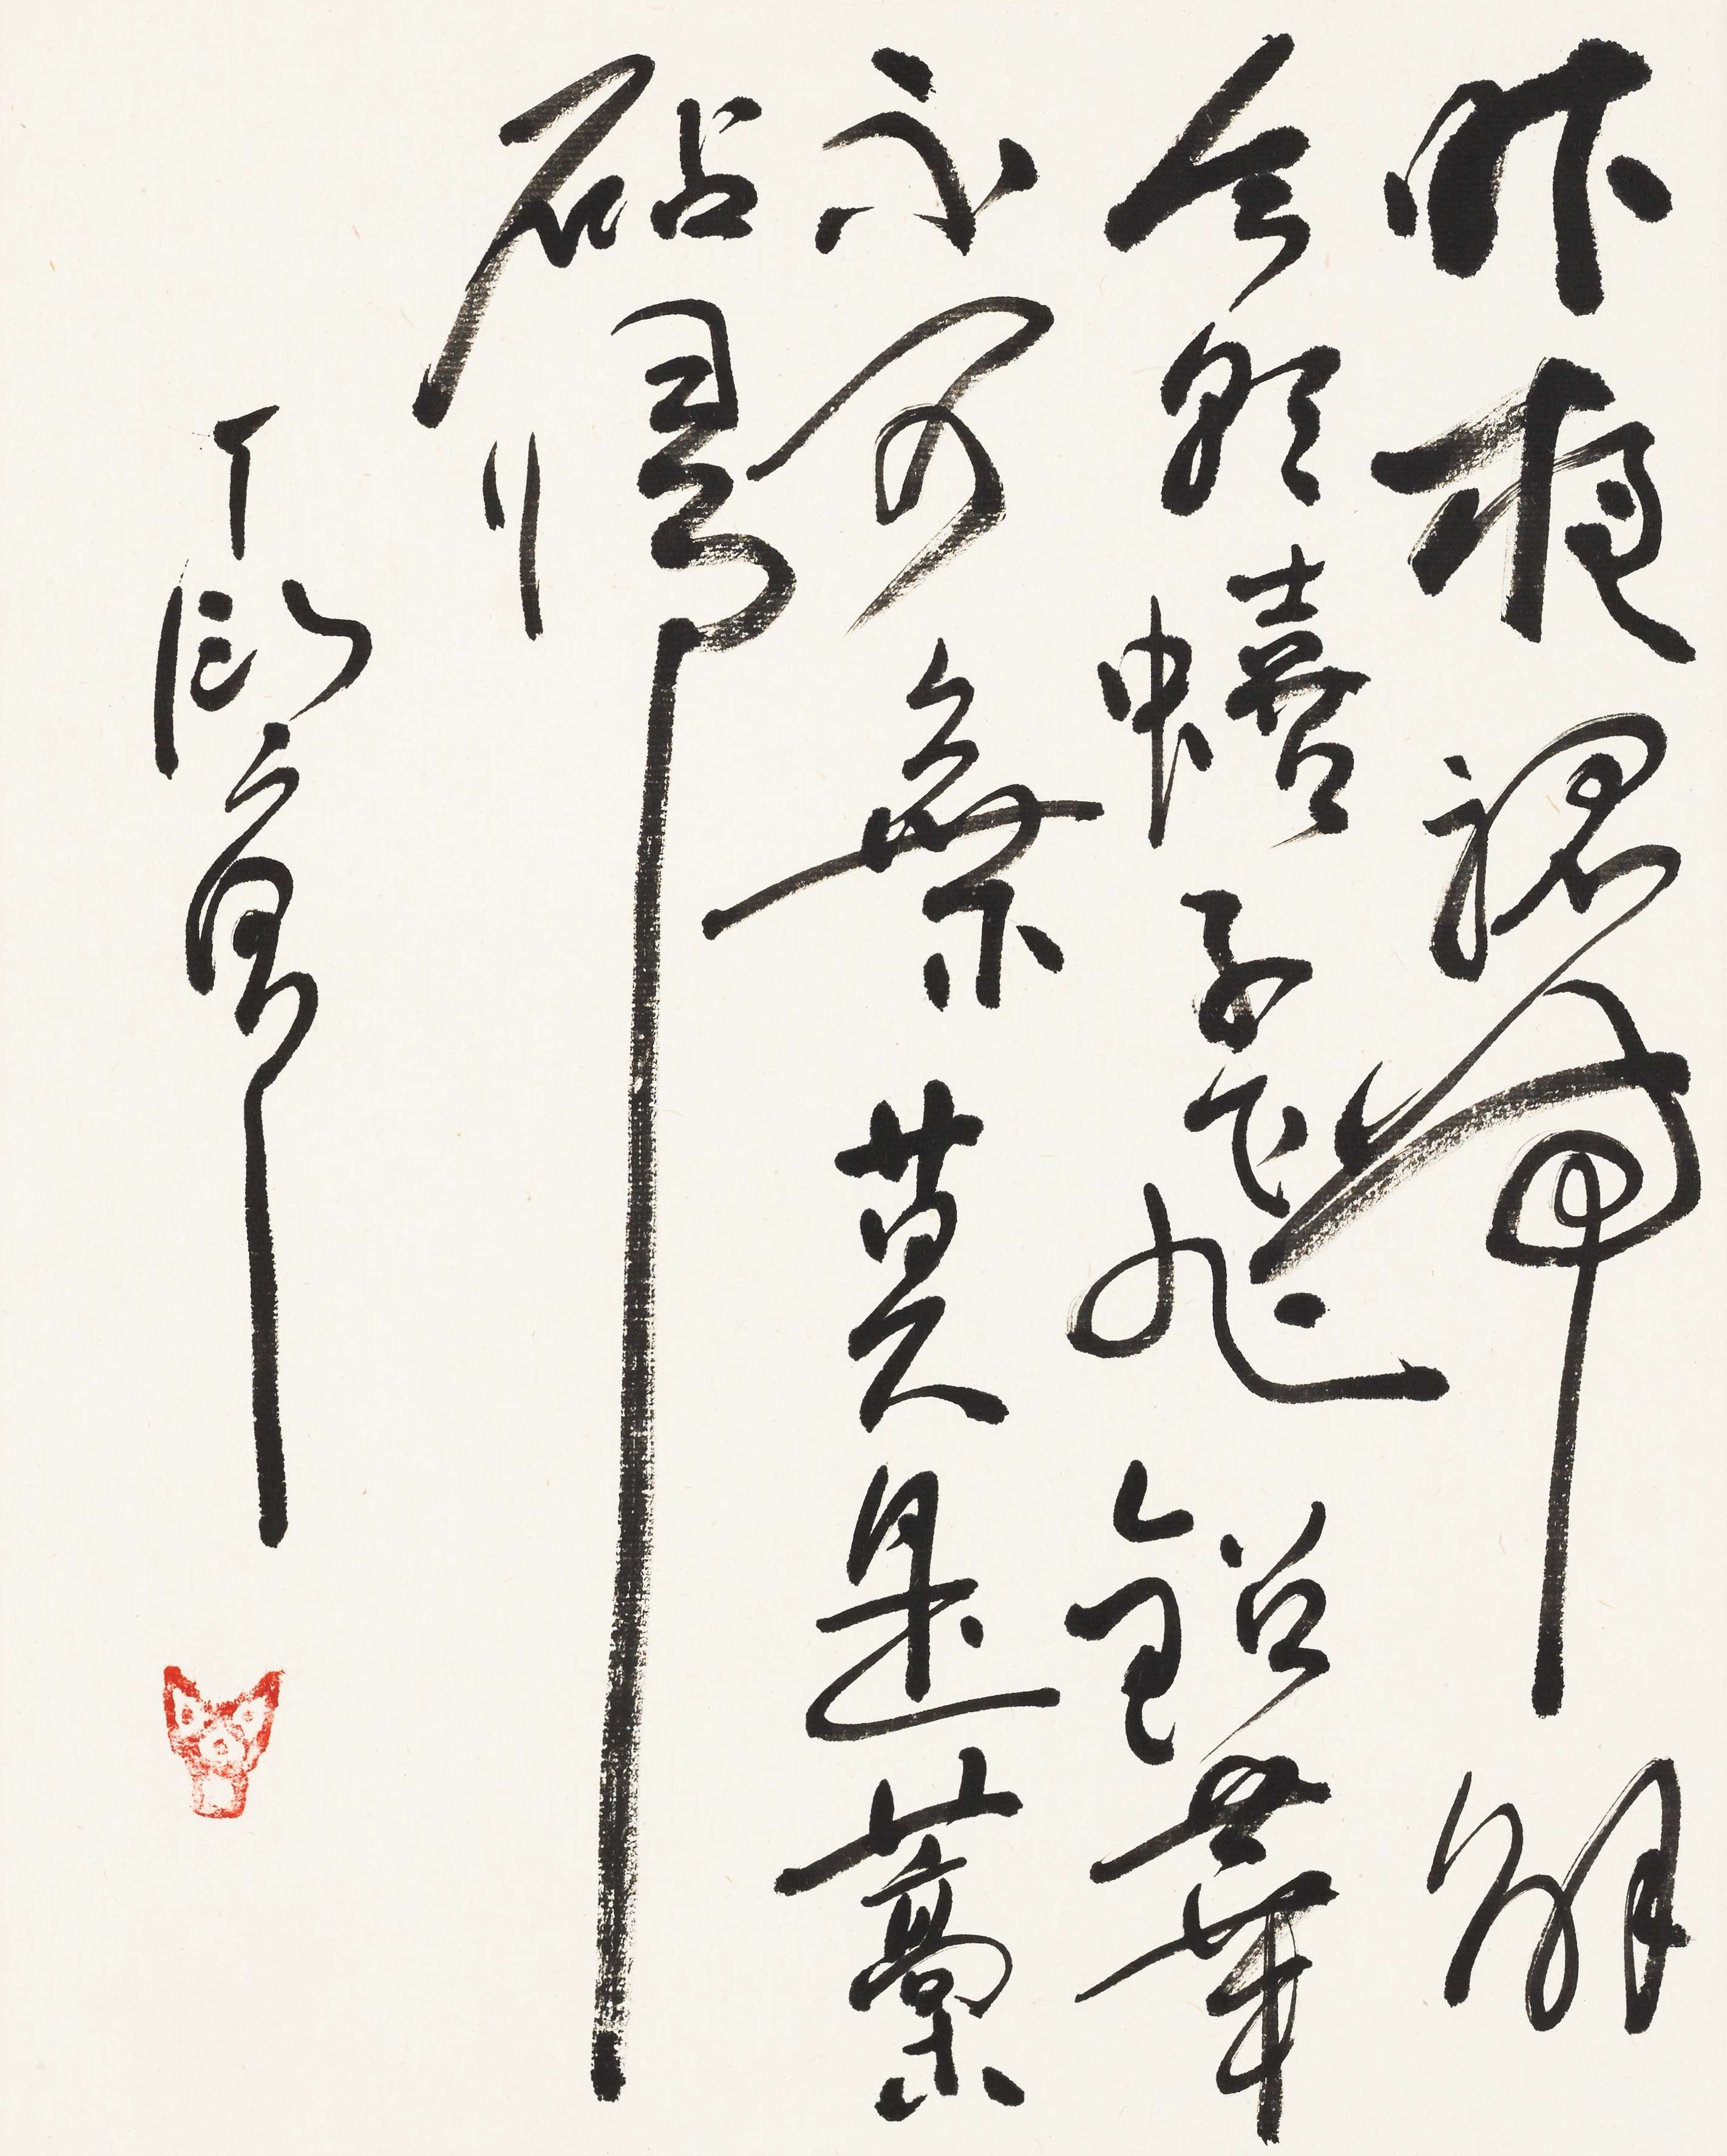 昨夜裙帶解
今朝蟢子飛鉛華
不可棄莫是藁
砧歸